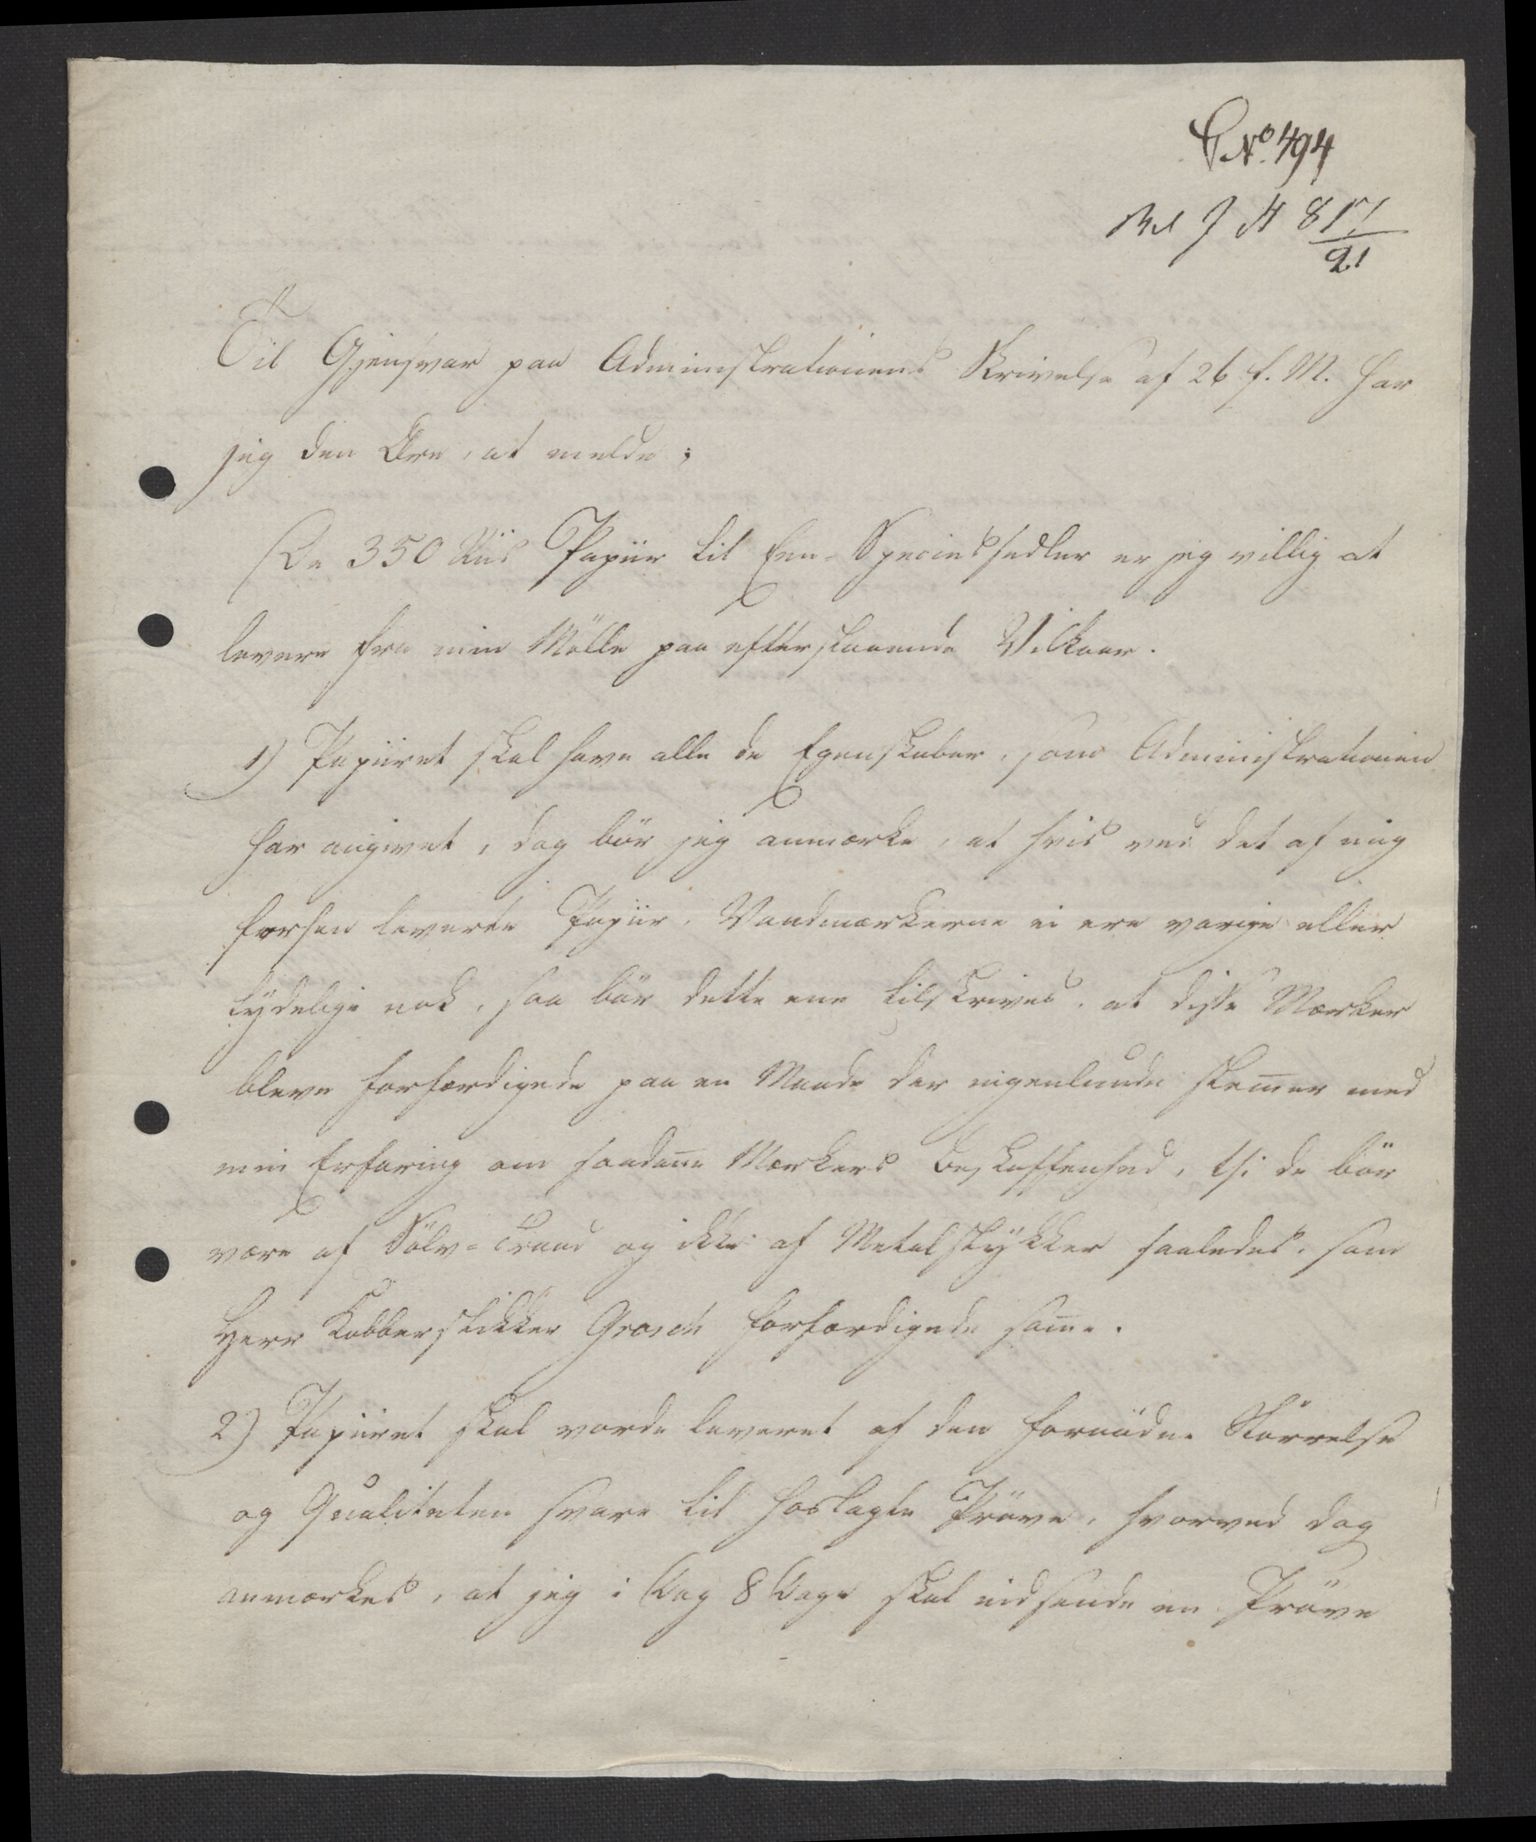 C No. 494
J N 817/21
Til Gjensvar paa Administrationens Skrivelse af 26 f. M. har
jeg den Ære, at melde;
De 350 Riis Papiir til Een-Speciessedler er jeg villig at
levere fra min Mölle paa efterstaaende Vilkaar.
1) Papiiret skal have alle de Egenskaber, som Administrationen
har angivet, dog bör jeg anmærke, at hvis ved det af mig
forhen leverte Papiir, Vandmærkerne ei ere varige eller
tydelige nok, saa bör dette ene tilskrives, at disse Mærker
bleve forfærdigede paa en Maade der ingenlunde stem̅er med
min Erfaring om saadan̅e Mærkers Beskaffenhed, thi de bör
være af Sölv-Traad og ikke af Metalstykker saaledes, som
Herr Kobberstikker Grosch forfærdigede sam̅e.
2) Papiiret skal vorde leveret af den fornödne Störrelse
og Qualiteten svare til hoslagte Pröve, hvorved dog
anmærkes, at jeg i Dag 8 Dage skal indsende en Pröve